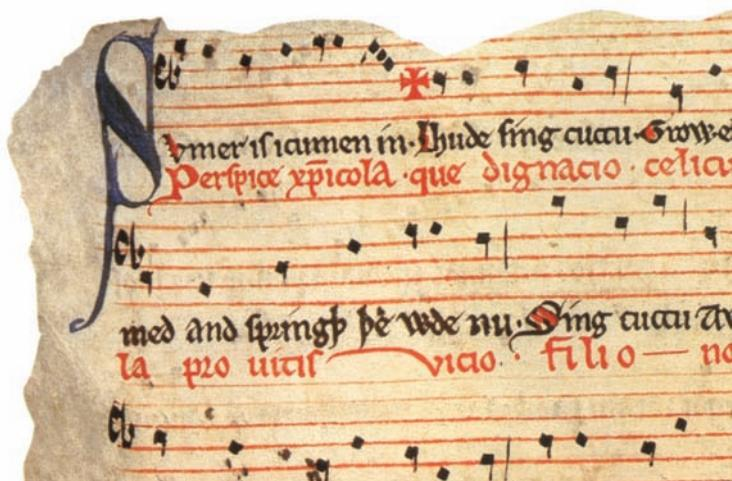 Sumer is icumen in· Lhude sing cuccu· Groweþ
Perspice xp̄icola· que dignacio· celicus
med and springþ þe wde nu· Sing cuccu
la pro uitis vicio· filio—